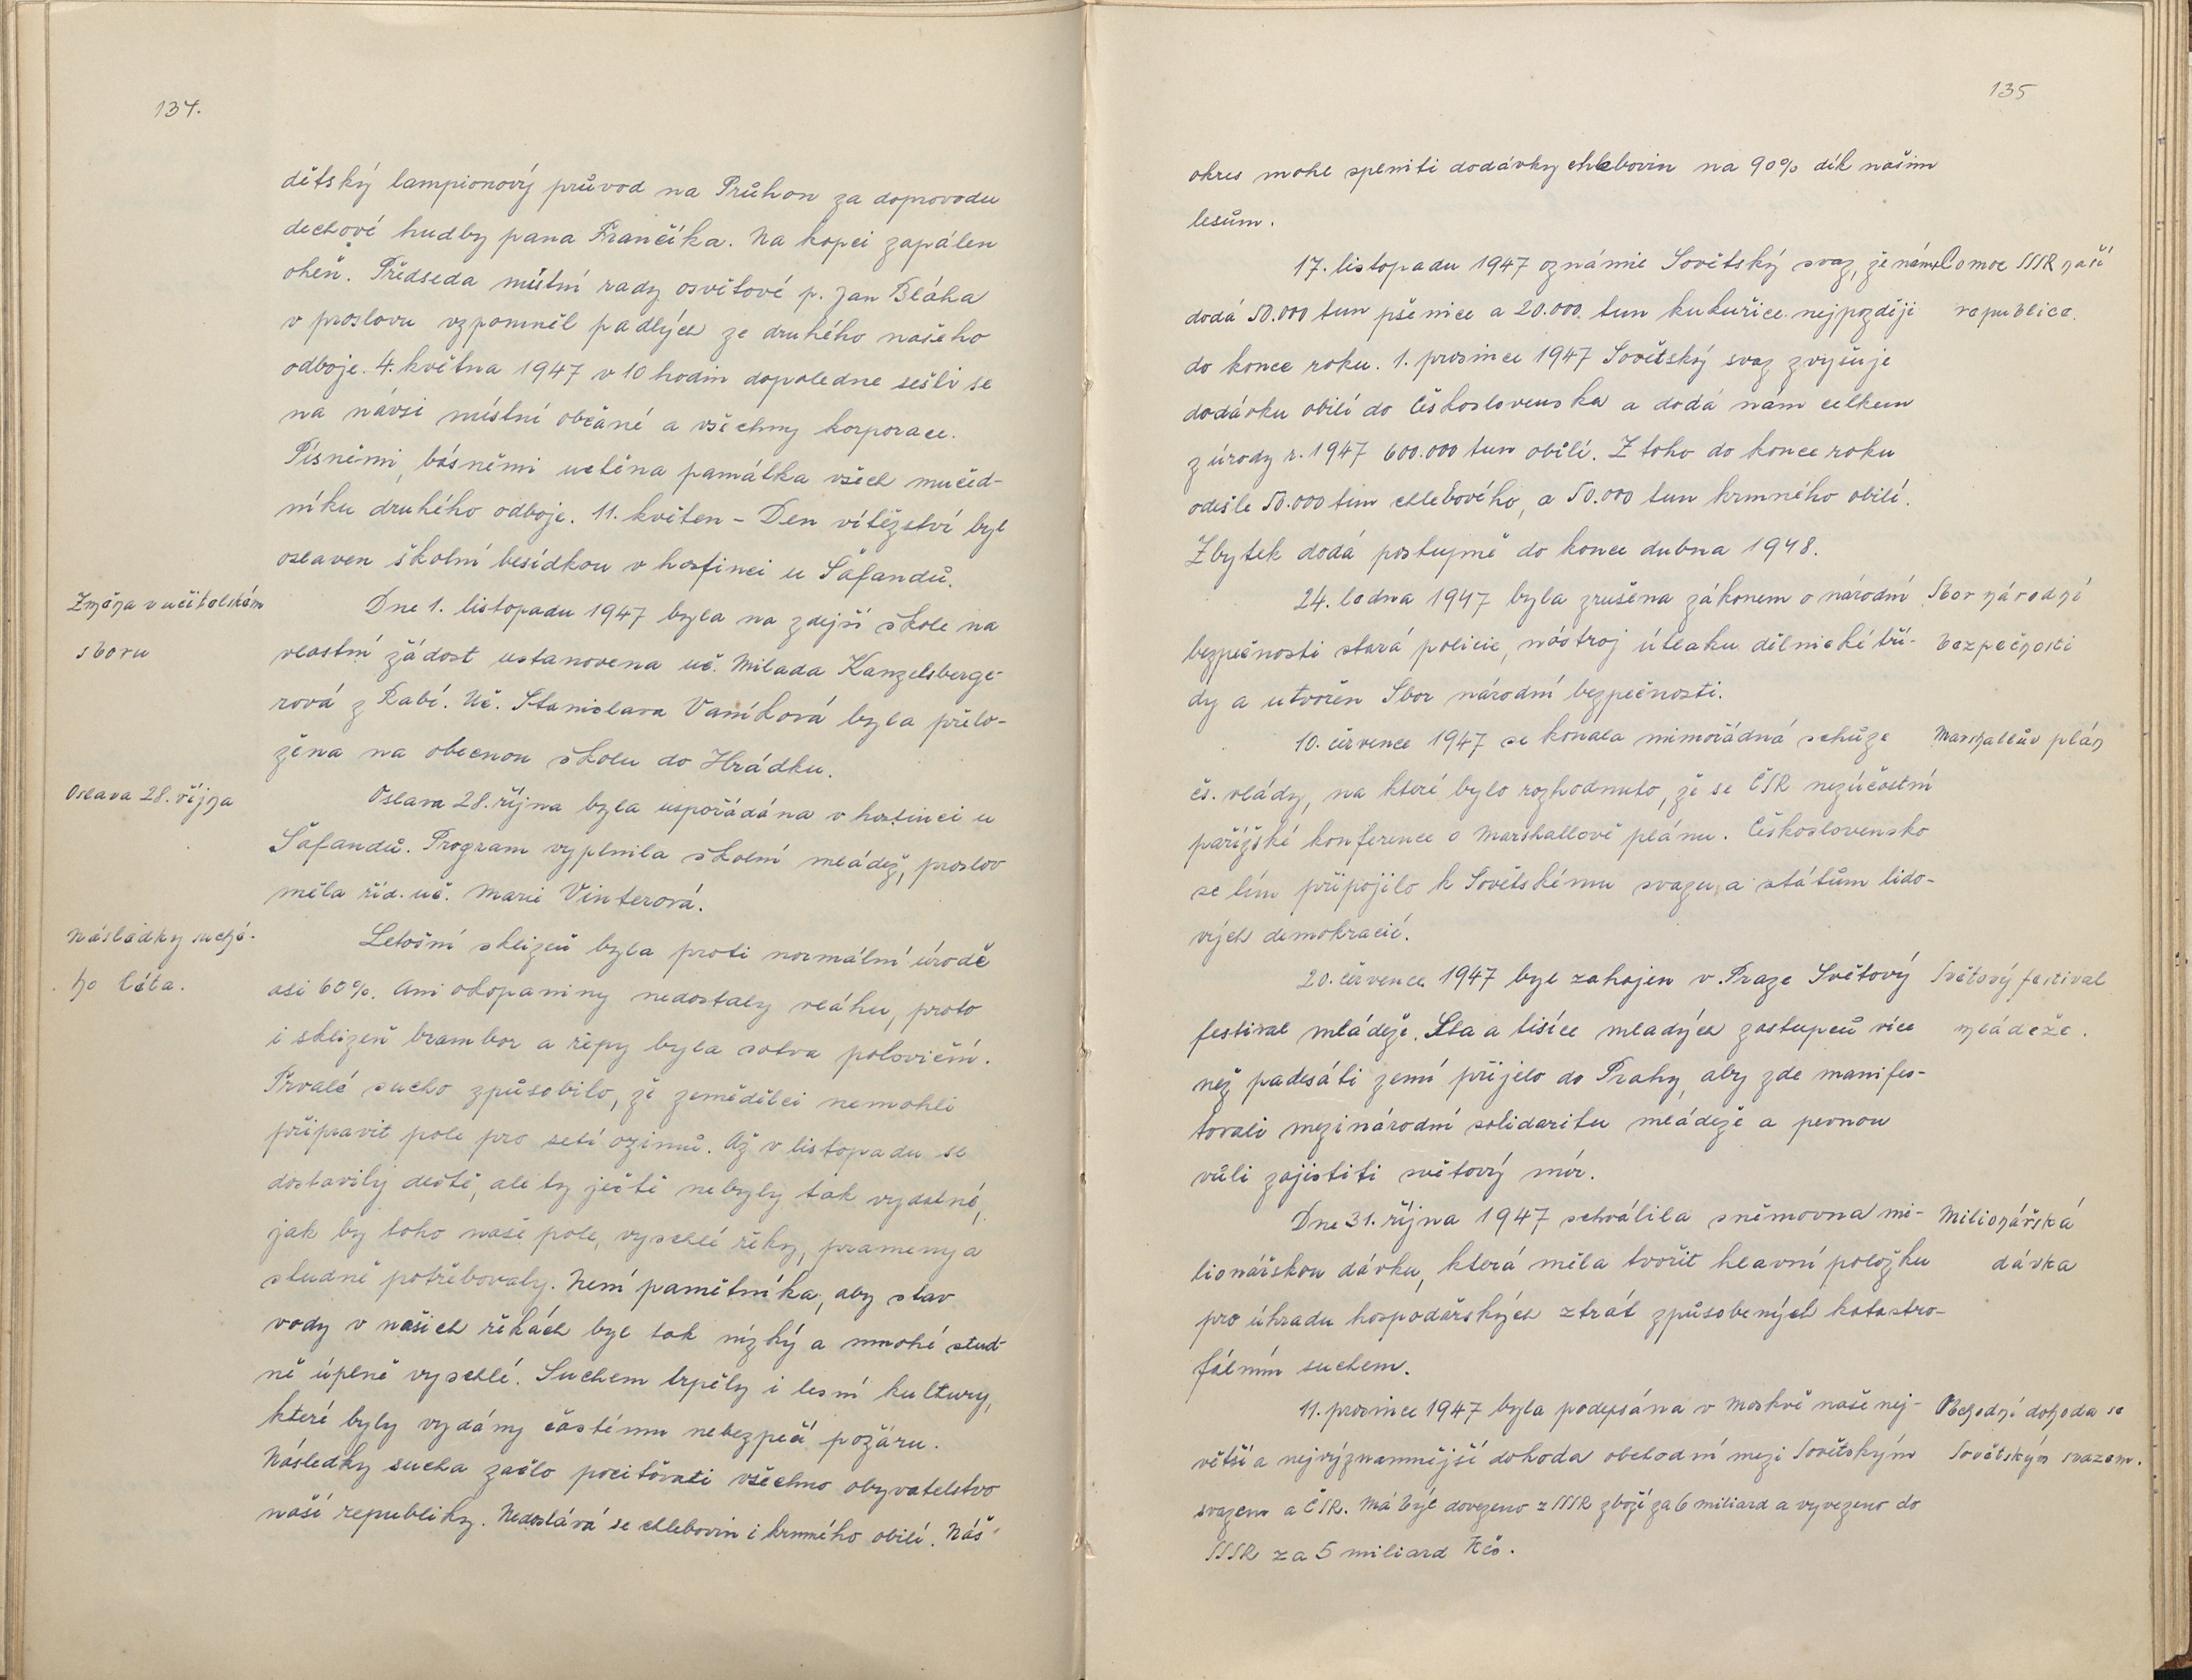 134.
dětský lampionový průvod na Průhon za doprovodu
dechové hudby pana Frančíka. Na kopci zapálen
oheň. Předseda místní rady osvětové p. Jan Bláha
v proslovu vzpomněl padlých ze druhého našeho
odboje. 4. května 1947 v 10 hodin dopoledne sešli se
na návsi místní občané a všechny korporace.
Písněmi, básněmi uctěna památka všech mučed-
níku druhého odboje. 11. květen - Den vítězství byl
oslaven školní besídkou v hostinci u Šafandů.
Změna v učitelském
sboru
Dne 1. listopadu 1947 byla na zdejší škole na
vlastní žádost ustanovena uč. Milada Kanzelsberge-
rová z Rabí. Uč. Stanislava Vaníková byla přelo-
žena na obecnou školu do Hrádku.
Oslava 28. října
Oslava 28. října byla uspořádána v hostinci u
Šafandů. Program vyplnila školní mládež, proslov
měla říd. uč. Marie Vinterová.
Následky suché-
ho léta.
Letošní sklizeň byla proti normální úrodě
asi 60%. Ani okopaniny nedostaly vláhu, proto
i sklizeň brambor a řepy byla sotva poloviční.
Trvalé sucho způsobilo, že zemědělci nemohli
připravit pole pro setí ozimů. Až v listopadu se
dostavily deště, ale ty ještě nebyly tak vydatné,
jak by toho naše pole, vyschlé řeky, prameny a
studně potřebovaly. Není pamětníka, aby stav
vody v našich řekách byl tak nízký a mnohé stud-
ně úplně vyschlé. Suchem trpěly i lesní kultury,
které byly vydány častému nebezpečí požáru.
Následky sucha začlo pociťovati všechno obyvatelstvo
naší republiky. Nedostává se chlebovin i krmného obilí. Náš
135
okres mohl splniti dodávky chlebovin na 90% dík našim
lesům.
17. listopadu 1947 oznámil Sovětský svaz, že nám
Pomoc SSSR naší
dodá 50.000 tun pšenice a 20.000. tun kukuřice nejpozději
republice.
do konce roku. 1. prosince 1947 Sovětský svaz zvyšuje
dodávku obilí do Československa a dodá nám celkem
z úrody r. 1947 600.000 tun obilí. Z toho do konce roku
odešle 50.000 tun chlebového, a 50.000 tun krmného obilí.
Zbytek dodá postupně do konce dubna 1948.
24. ledna 1947 byla zrušena zákonem o národní
Sbor národní
bezpečnosti stará policie, nástroj útlaku dělnické tří-
bezpečnosti
dy a utvořen Sbor národní bezpečnosti.
10. července 1947 se konala mimořádná schůze
Marshallův plán
čs. vlády, na které bylo rozhodnuto, že se ČSR nezúčastní
pařížské konference o Marshallově plánu. Československo
se tím připojilo k Sovětskému svazu, a státům lido-
vých demokracií.
20. července 1947 byl zahájen v Praze Světový
Světový festival
festival mládeže. Sta a tisíce mladých zástupců více
mládeže.
než padesáti zemí přijelo do Prahy, aby zde manifes-
tovali mezinárodní solidaritu mládeže a pevnou
vůli zajistiti světový mír.
Dne 31. října 1947 schválila sněmovna mi-
Milionářská
lionářskou dávku, která měla tvořit hlavní položku
dávka
pro úhradu hospodářských ztrát způsobených katastro-
fálním suchem.
11. prosince 1947 byla podepsána v Moskvě naše nej-
Obchodní dohoda se
větší a nejvýznamnější dohoda obchodní mezi Sovětským
Sovětským svazem.
svazem a ČSR. Má být dovezeno z SSSR zboží za 6 miliard a vyvezeno do
SSSR za 5 miliard Kčs.